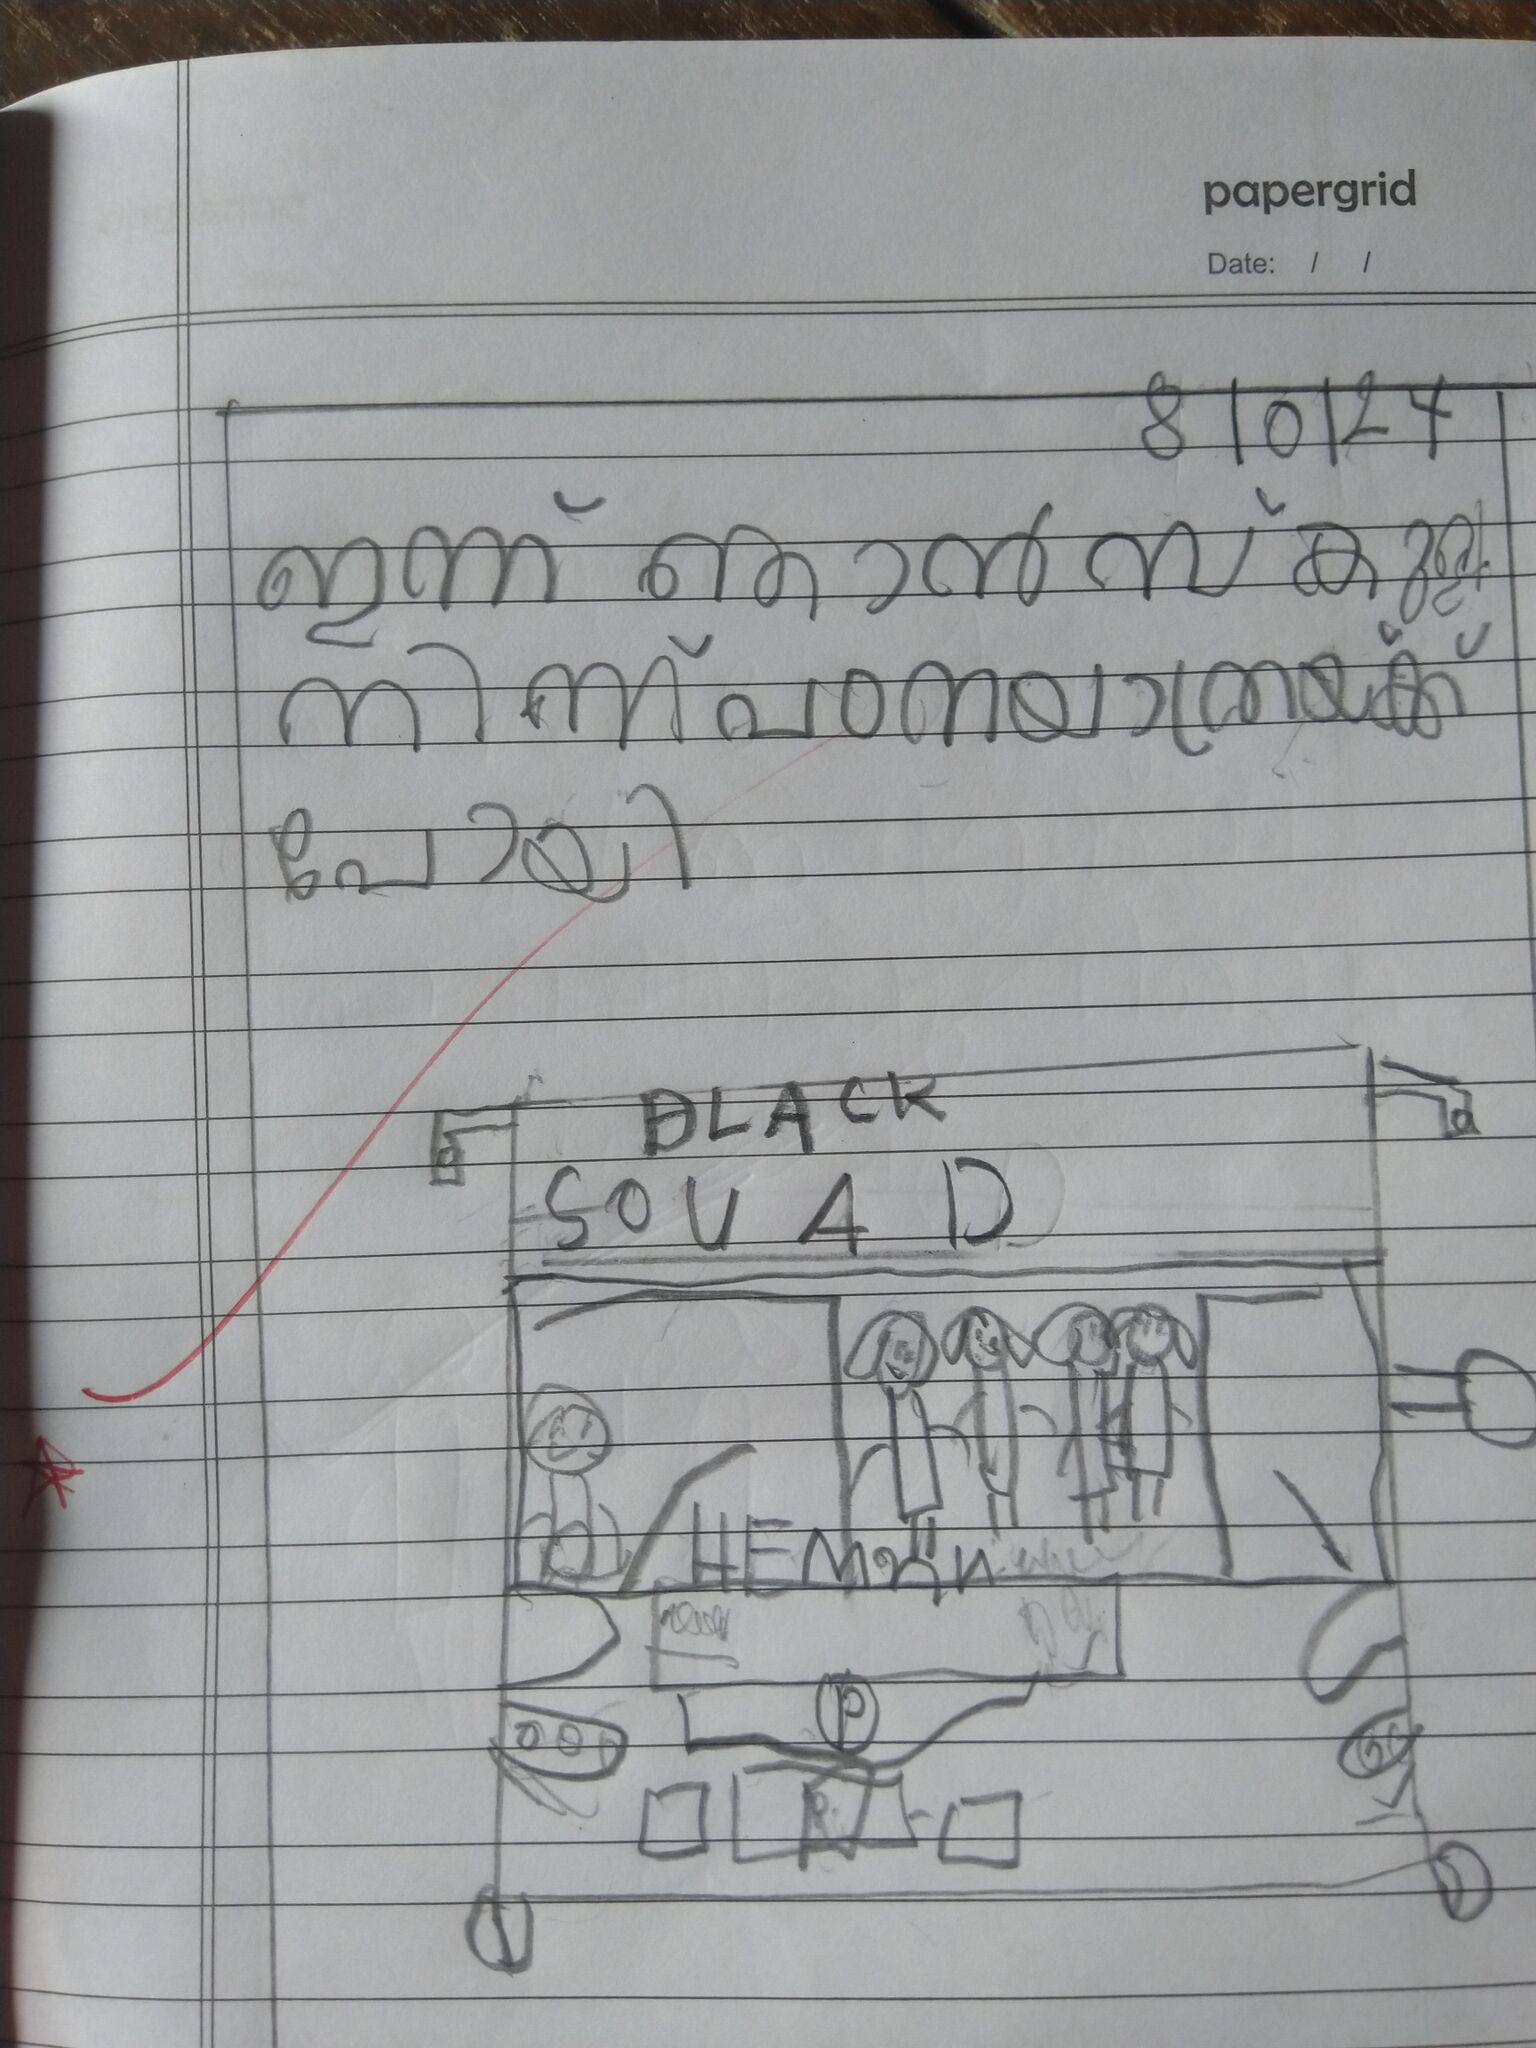 papergrid
Date: / /
8/10/24
ഇന്ന് ഞാൻ സ്കൂളിൽ
നിന്ന് പഠനയാത്രയ്ക്ക്
പോയി
BLACK
SQUAD
P